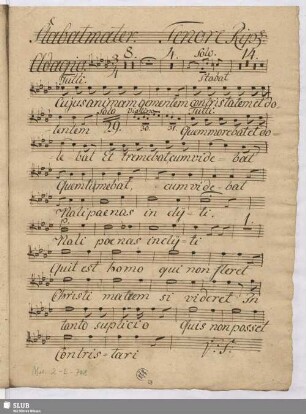 Stabat mater. Tenore Rip:
Adagio 3/4 8. 4. Solo. 14.
Tutti. Stabat
Cujus animam gementem contristatem et do
lentem Solo 29. Tutti. Quem morebat et do
le bat Et tremebat cum vide bat
Quem tumebat, cum vide bat
Nati paenas in cly ti.
Nati poenas inclyti 1.
Quit est homo qui non fleret
Christi matrem si videret in
tanto suplicio Quis non posset
Contris tari V: S:
Mus. 2-E-
SLUB